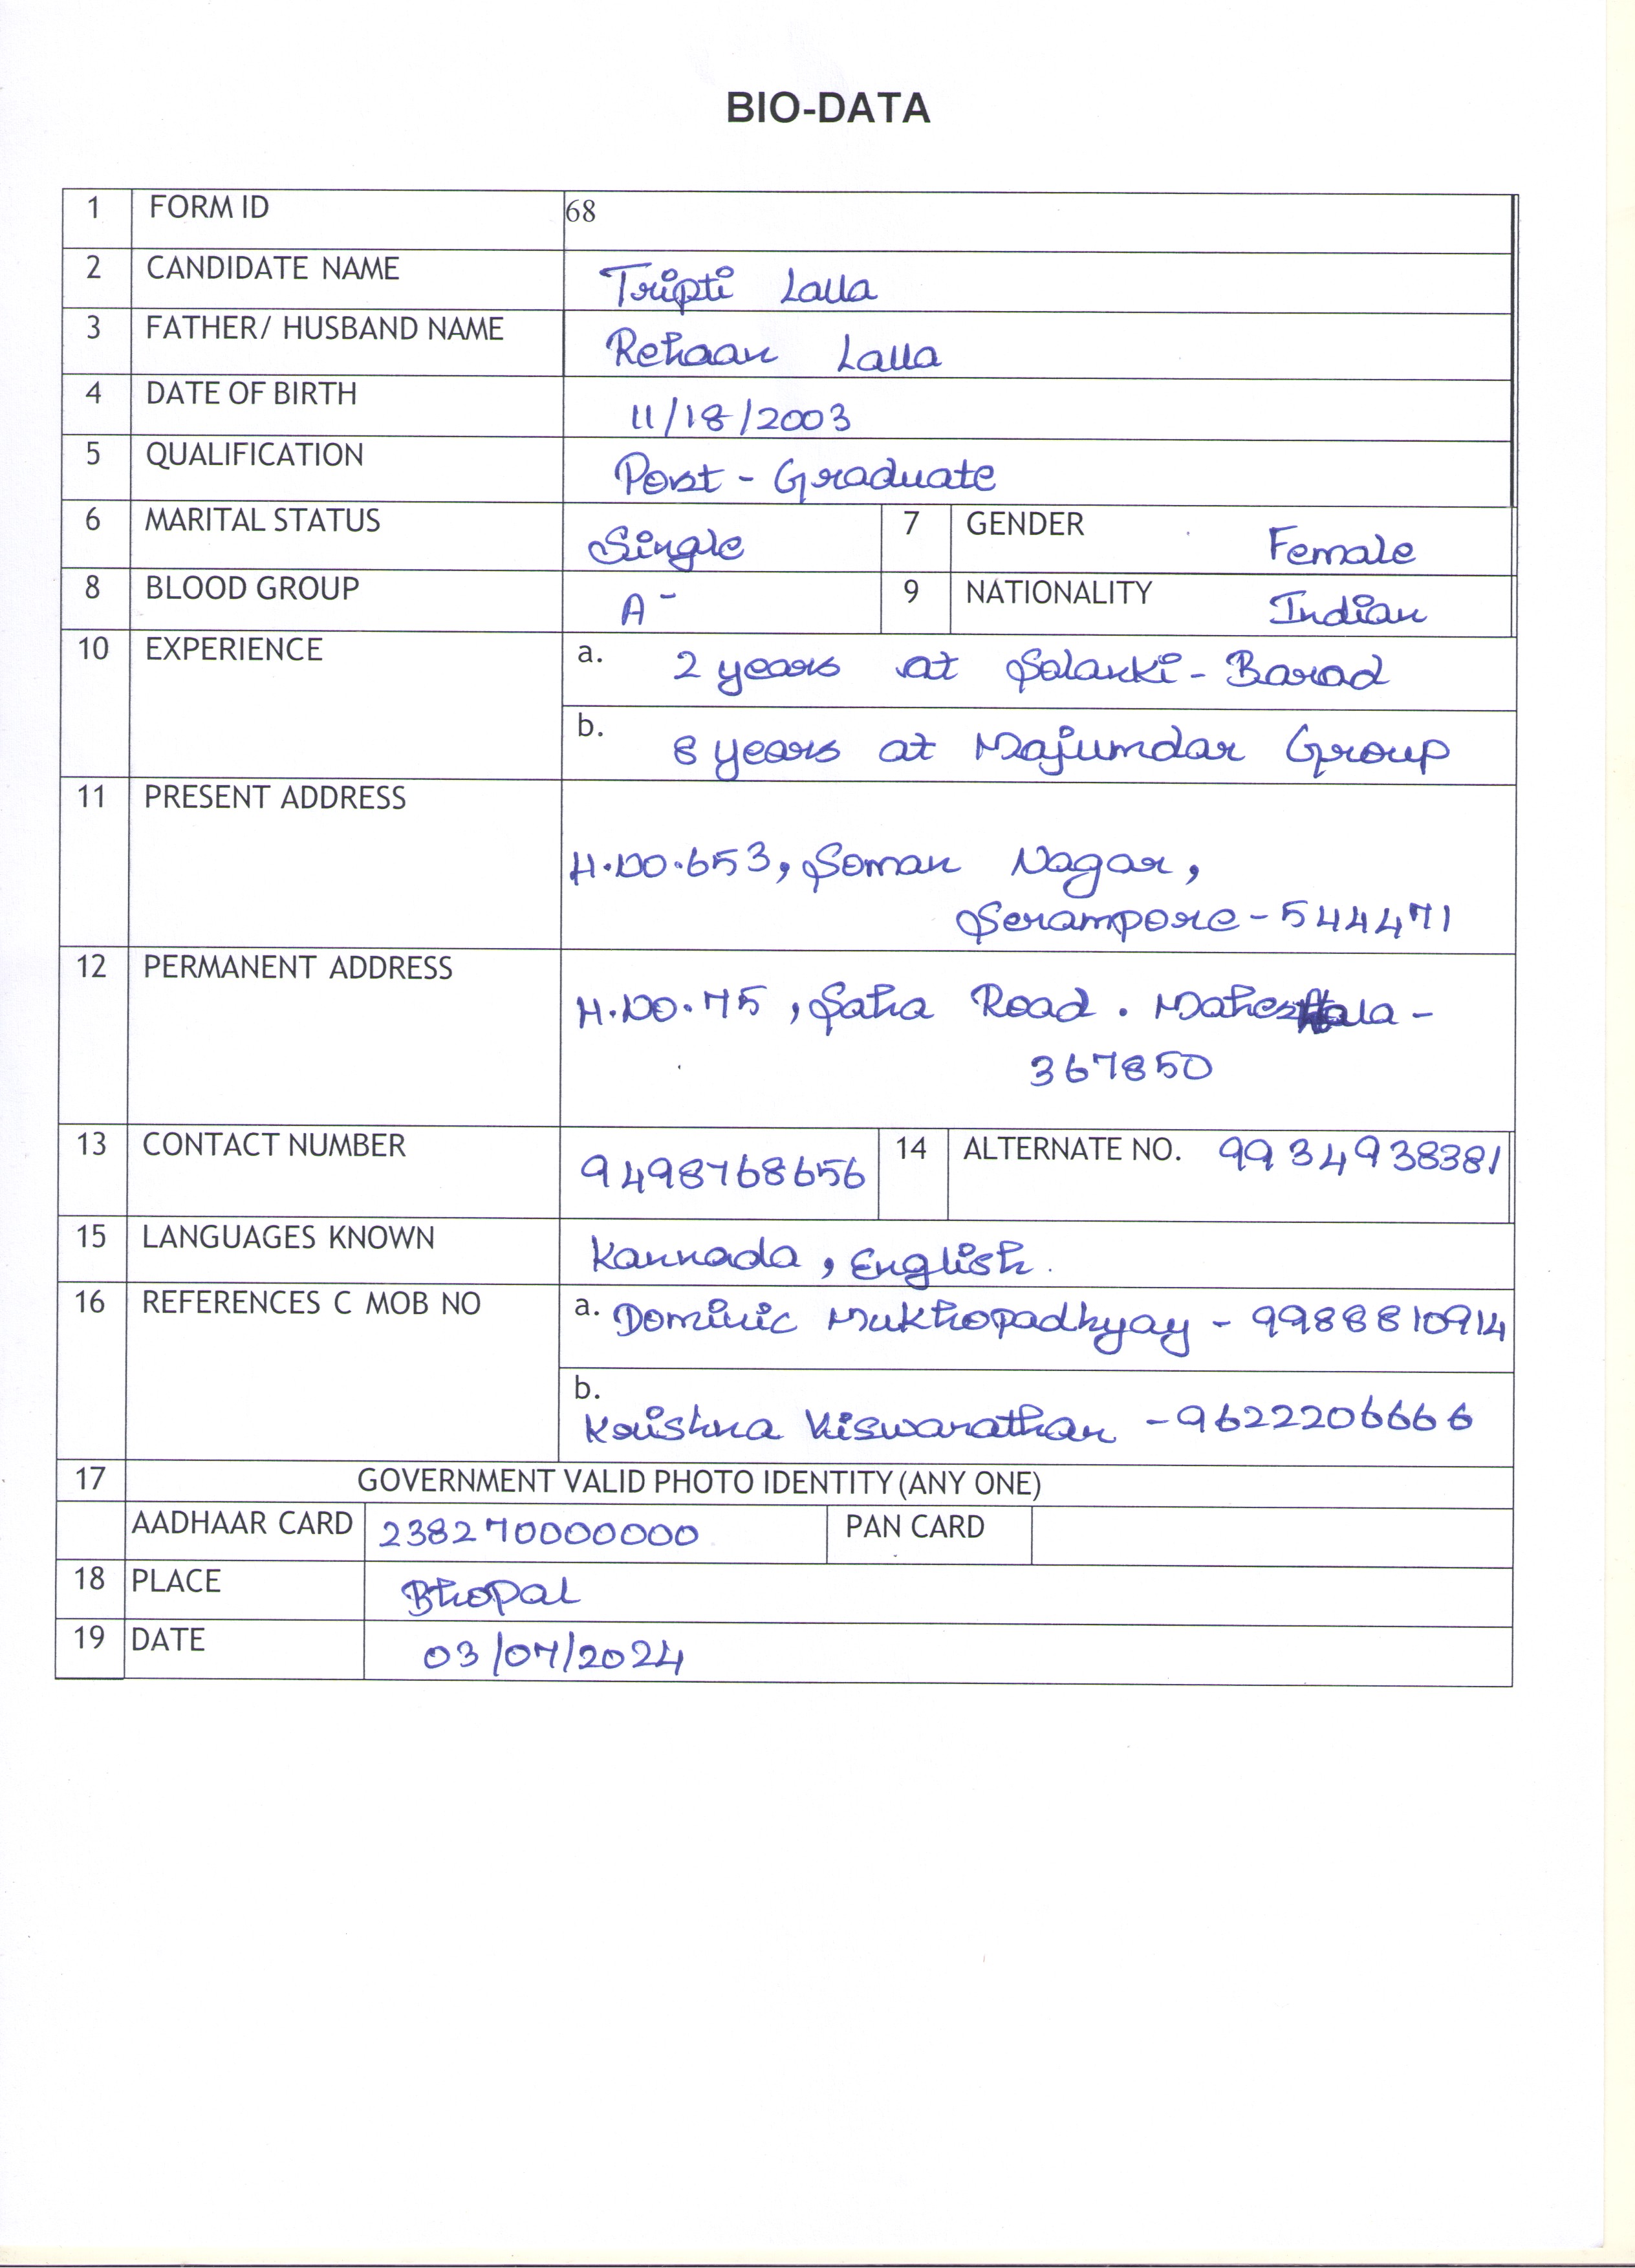 BIO-DATA
1 FORM ID 68
2 CANDIDATE NAME Tripti Lalla
3 FATHER/ HUSBAND NAME Rehaan Lalla
4 DATE OF BIRTH 11/18/2003
5 QUALIFICATION Post - Graduate
6 MARITAL STATUS Single 7 GENDER Female
8 BLOOD GROUP A- 9 NATIONALITY Indian
10 EXPERIENCE a. 2 years at Solanki - Barad
b. 8 years at Majumdar Group
11 PRESENT ADDRESS
H.NO.653, Soman Nagar,
Serampore - 544471
12 PERMANENT ADDRESS
H.NO.75, Saha Road.
367850
13 CONTACT NUMBER 9498768656 14 ALTERNATE NO. 9934938381
15 LANGUAGES KNOWN Kannada, English.
16 REFERENCES C MOB NO a. Dominic Mukhopadhyay - 9988810914
b. Krishna Viswarathan - 9622206666
17 GOVERNMENT VALID PHOTO IDENTITY (ANY ONE)
AADHAAR CARD 238270000000 PAN CARD
18 PLACE Bhopal
19 DATE 03/07/2024